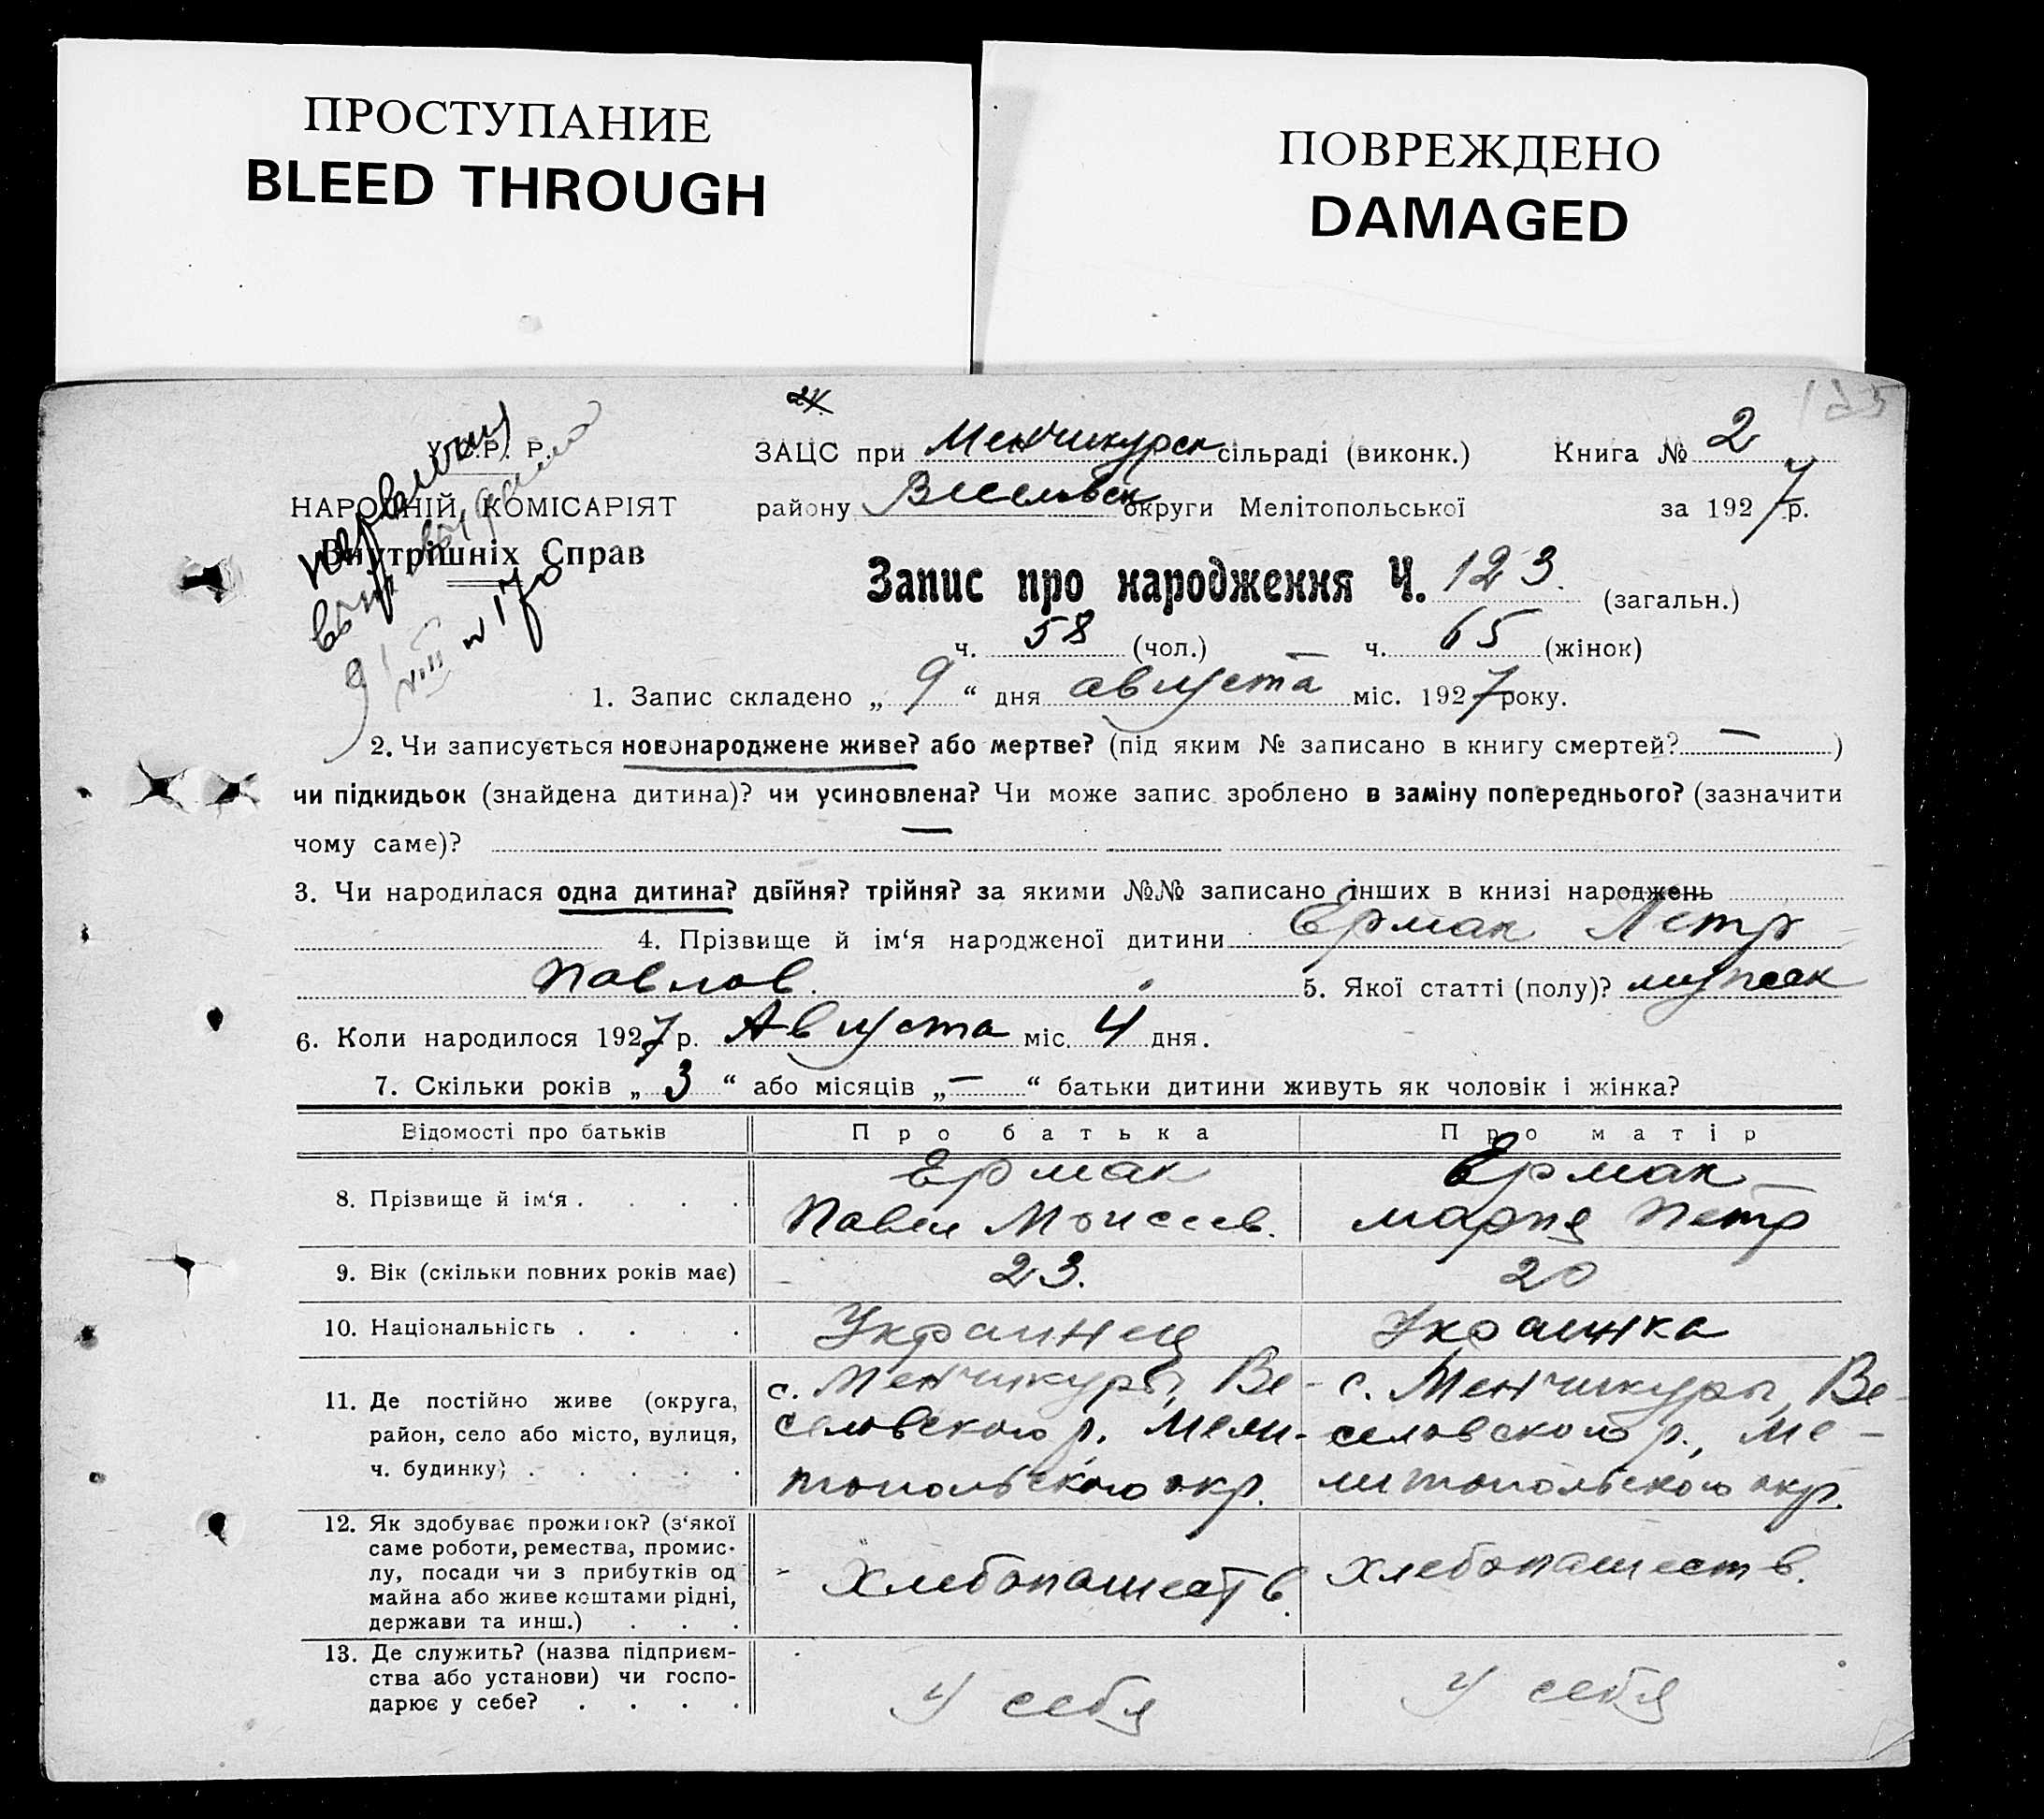 ПРОСТУПАНИЕ
BLEED THROUGH
ПОВРЕЖДЕНО
DAMAGED
125
24.
У.С.Р.Р.
НАРОДНІЙ КОМІСАРІЯТ
Внутрішніх Справ
№ 170
ЗАЦС при Менчикурск сільраді (виконк.) Книга № 2
району Веселовск округи Мелітопольської за 1927 р.
Запис про народження Ч. 123. (загальн.)
ч. 58 (чол.) ч. 65 (жінок)
1. Запис складено „ 9 “ дня августа міс. 1927 року.
2. Чи записується новонароджене живе? або мертве? (під яким № записано в книгу смертей? — )
чи підкидьок (знайдена дитина)? чи усиновлена? Чи може запис зроблено в заміну попереднього? (зазначити
чому саме)? —
3. Чи народилася одна дитина? двійня? трійня? за якими №№ записано інших в книзі народжень
4. Прізвище й ім‘я народженої дитини Ермак Петр
Павлов. 5. Якої статті (полу)? мужск
6. Коли народилося 1927 р. Августа міс. 4 дня.
7. Скільки років „ 3 “ або місяців „ — “ батьки дитини живуть як чоловік і жінка?
Відомості про батьків Про батька Про матір
8. Прізвище й ім‘я . . . . Ермак Ермак
Павел Моисеев. Мария Петр
9. Вік (скільки повних років має) 23. 20
10. Національність . . . . Украинец Украинка
11. Де постійно живе (округа, с. Менчикуры, Ве- с. Менчикуры, Ве-
район, село або місто, вулиця, селовского р. Мели- селовского р., Ме-
ч. будинку) . . . . . топольского окр. литопольского окр.
12. Як здобуває прожиток? (з‘якої
саме роботи, ремества, промис-
лу, посади чи з прибутків од Хлебопашеств. Хлебопашеств.
майна або живе коштами рідні,
держави та инш.) . . .
13. Де служить? (назва підприєм-
ства або установи) чи госпо- У себя У себя
дарює у себе? . . . .